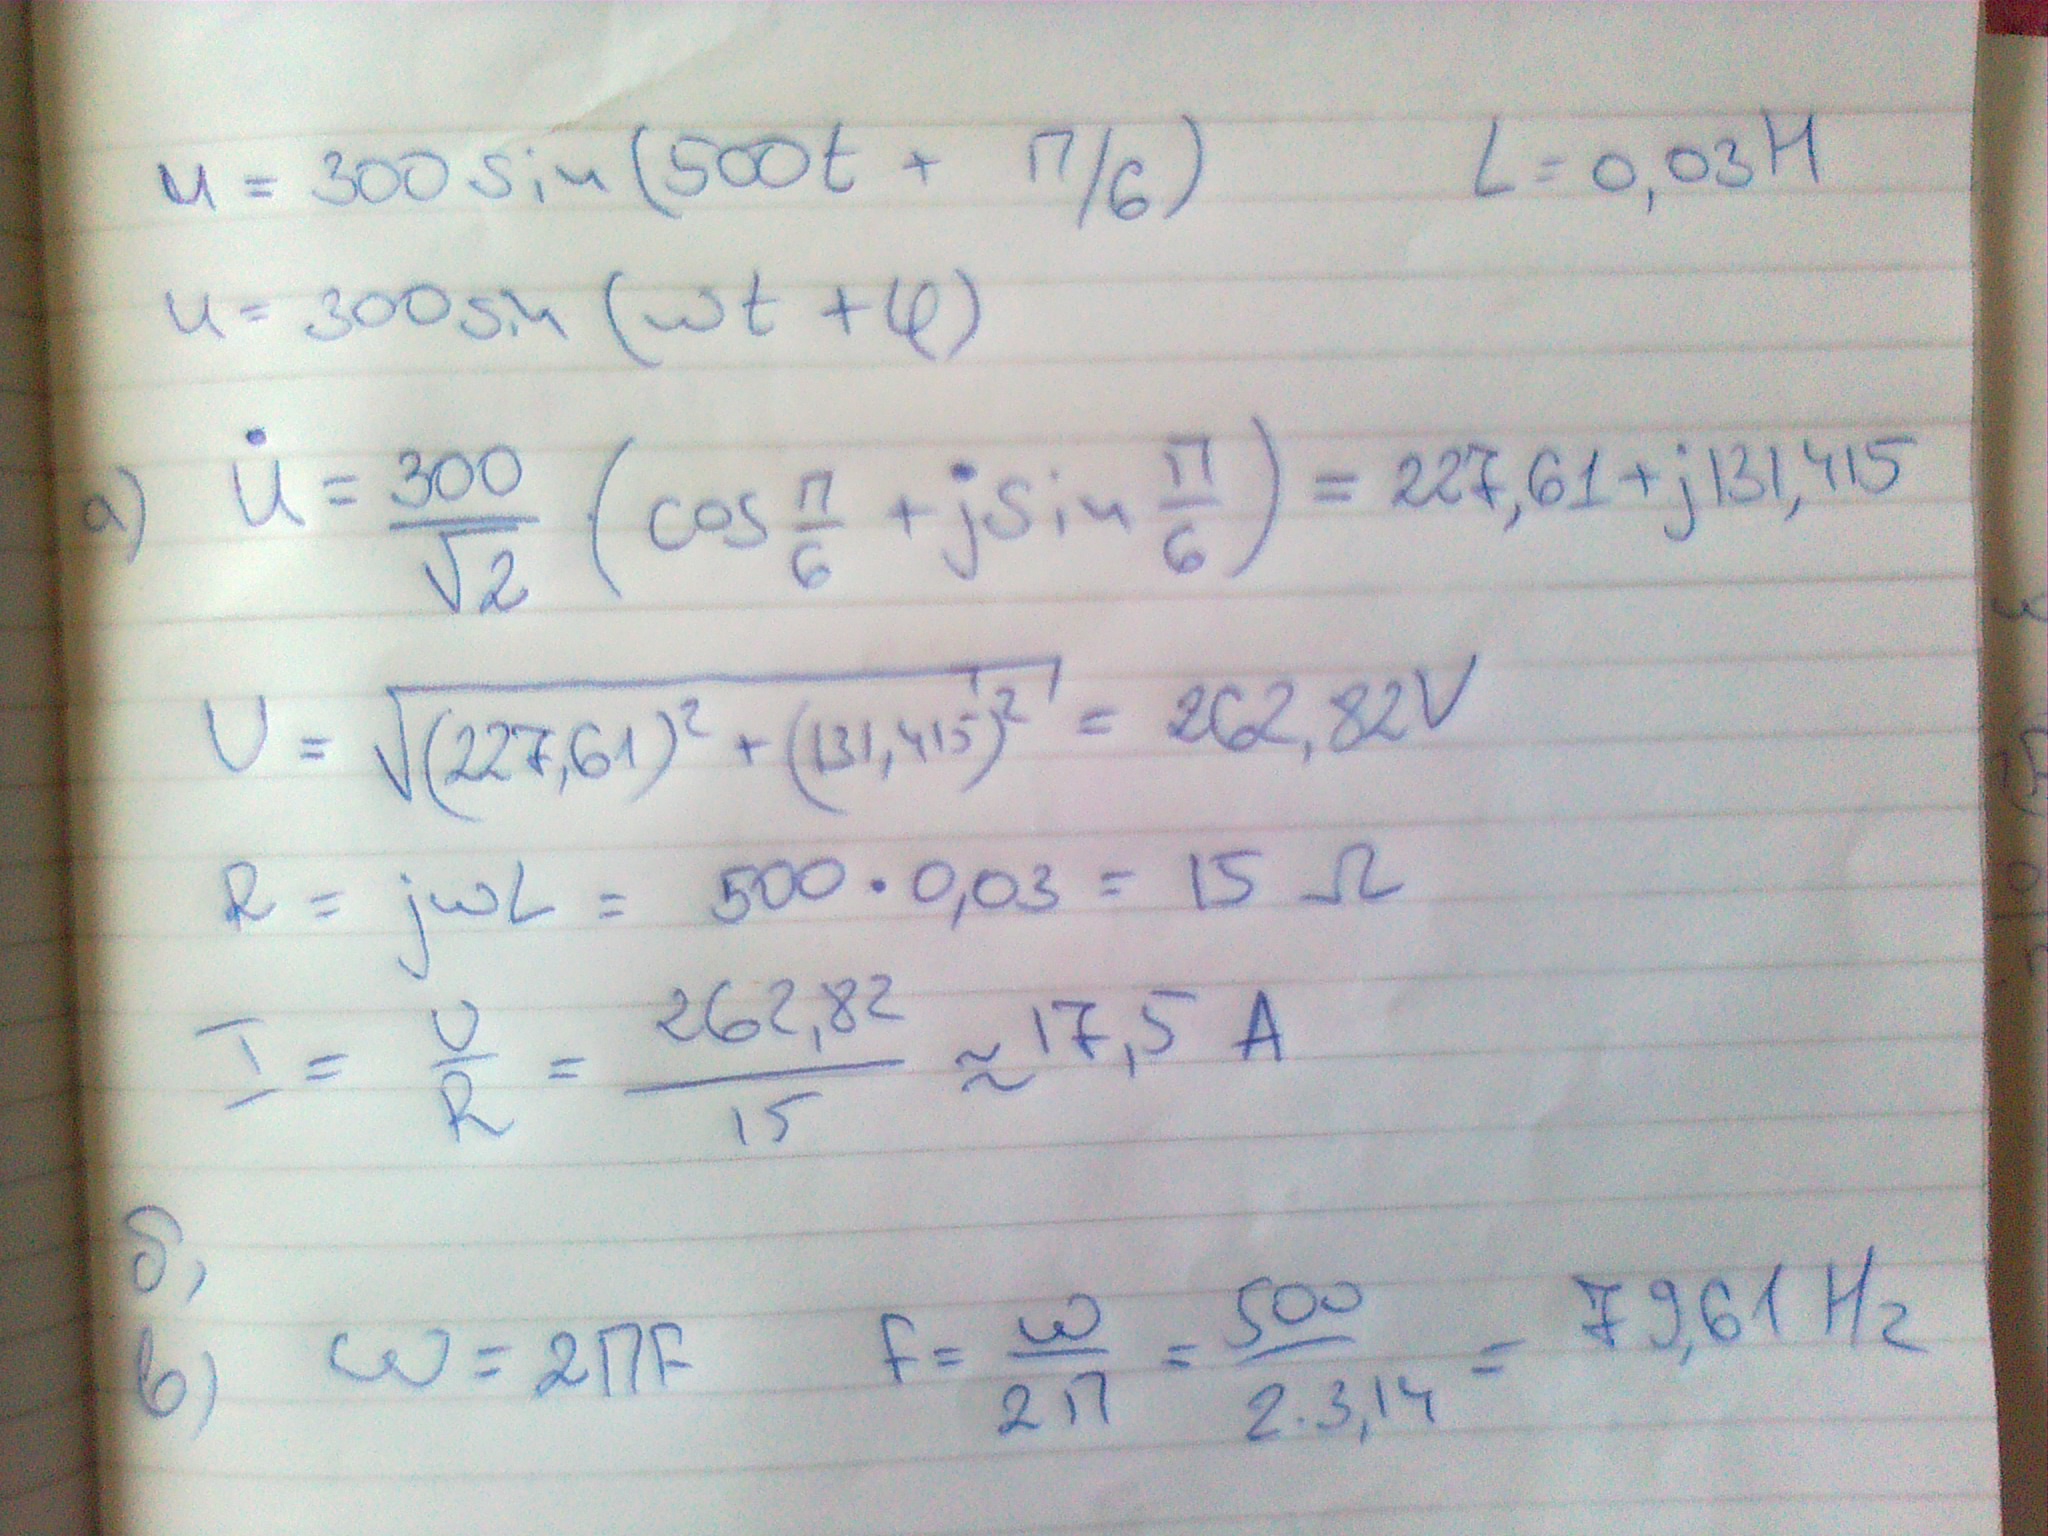 u = 300 sin (500t + П/6) L = 0,03H
u = 300 sin (ωt + φ)
a) U̇ = 300/√2 · (cos П/6 + j sin П/6) = 227,61 + j131,415
U = √((227,61)² + (131,415)²) = 262,82V
R = jωL = 500 · 0,03 = 15 Ω
I = U/R = 262,82/15 ≈ 17,5 A
б,
в) ω = 2ПF F = ω/2П = 500/2.3,14 = 79,61 Hz